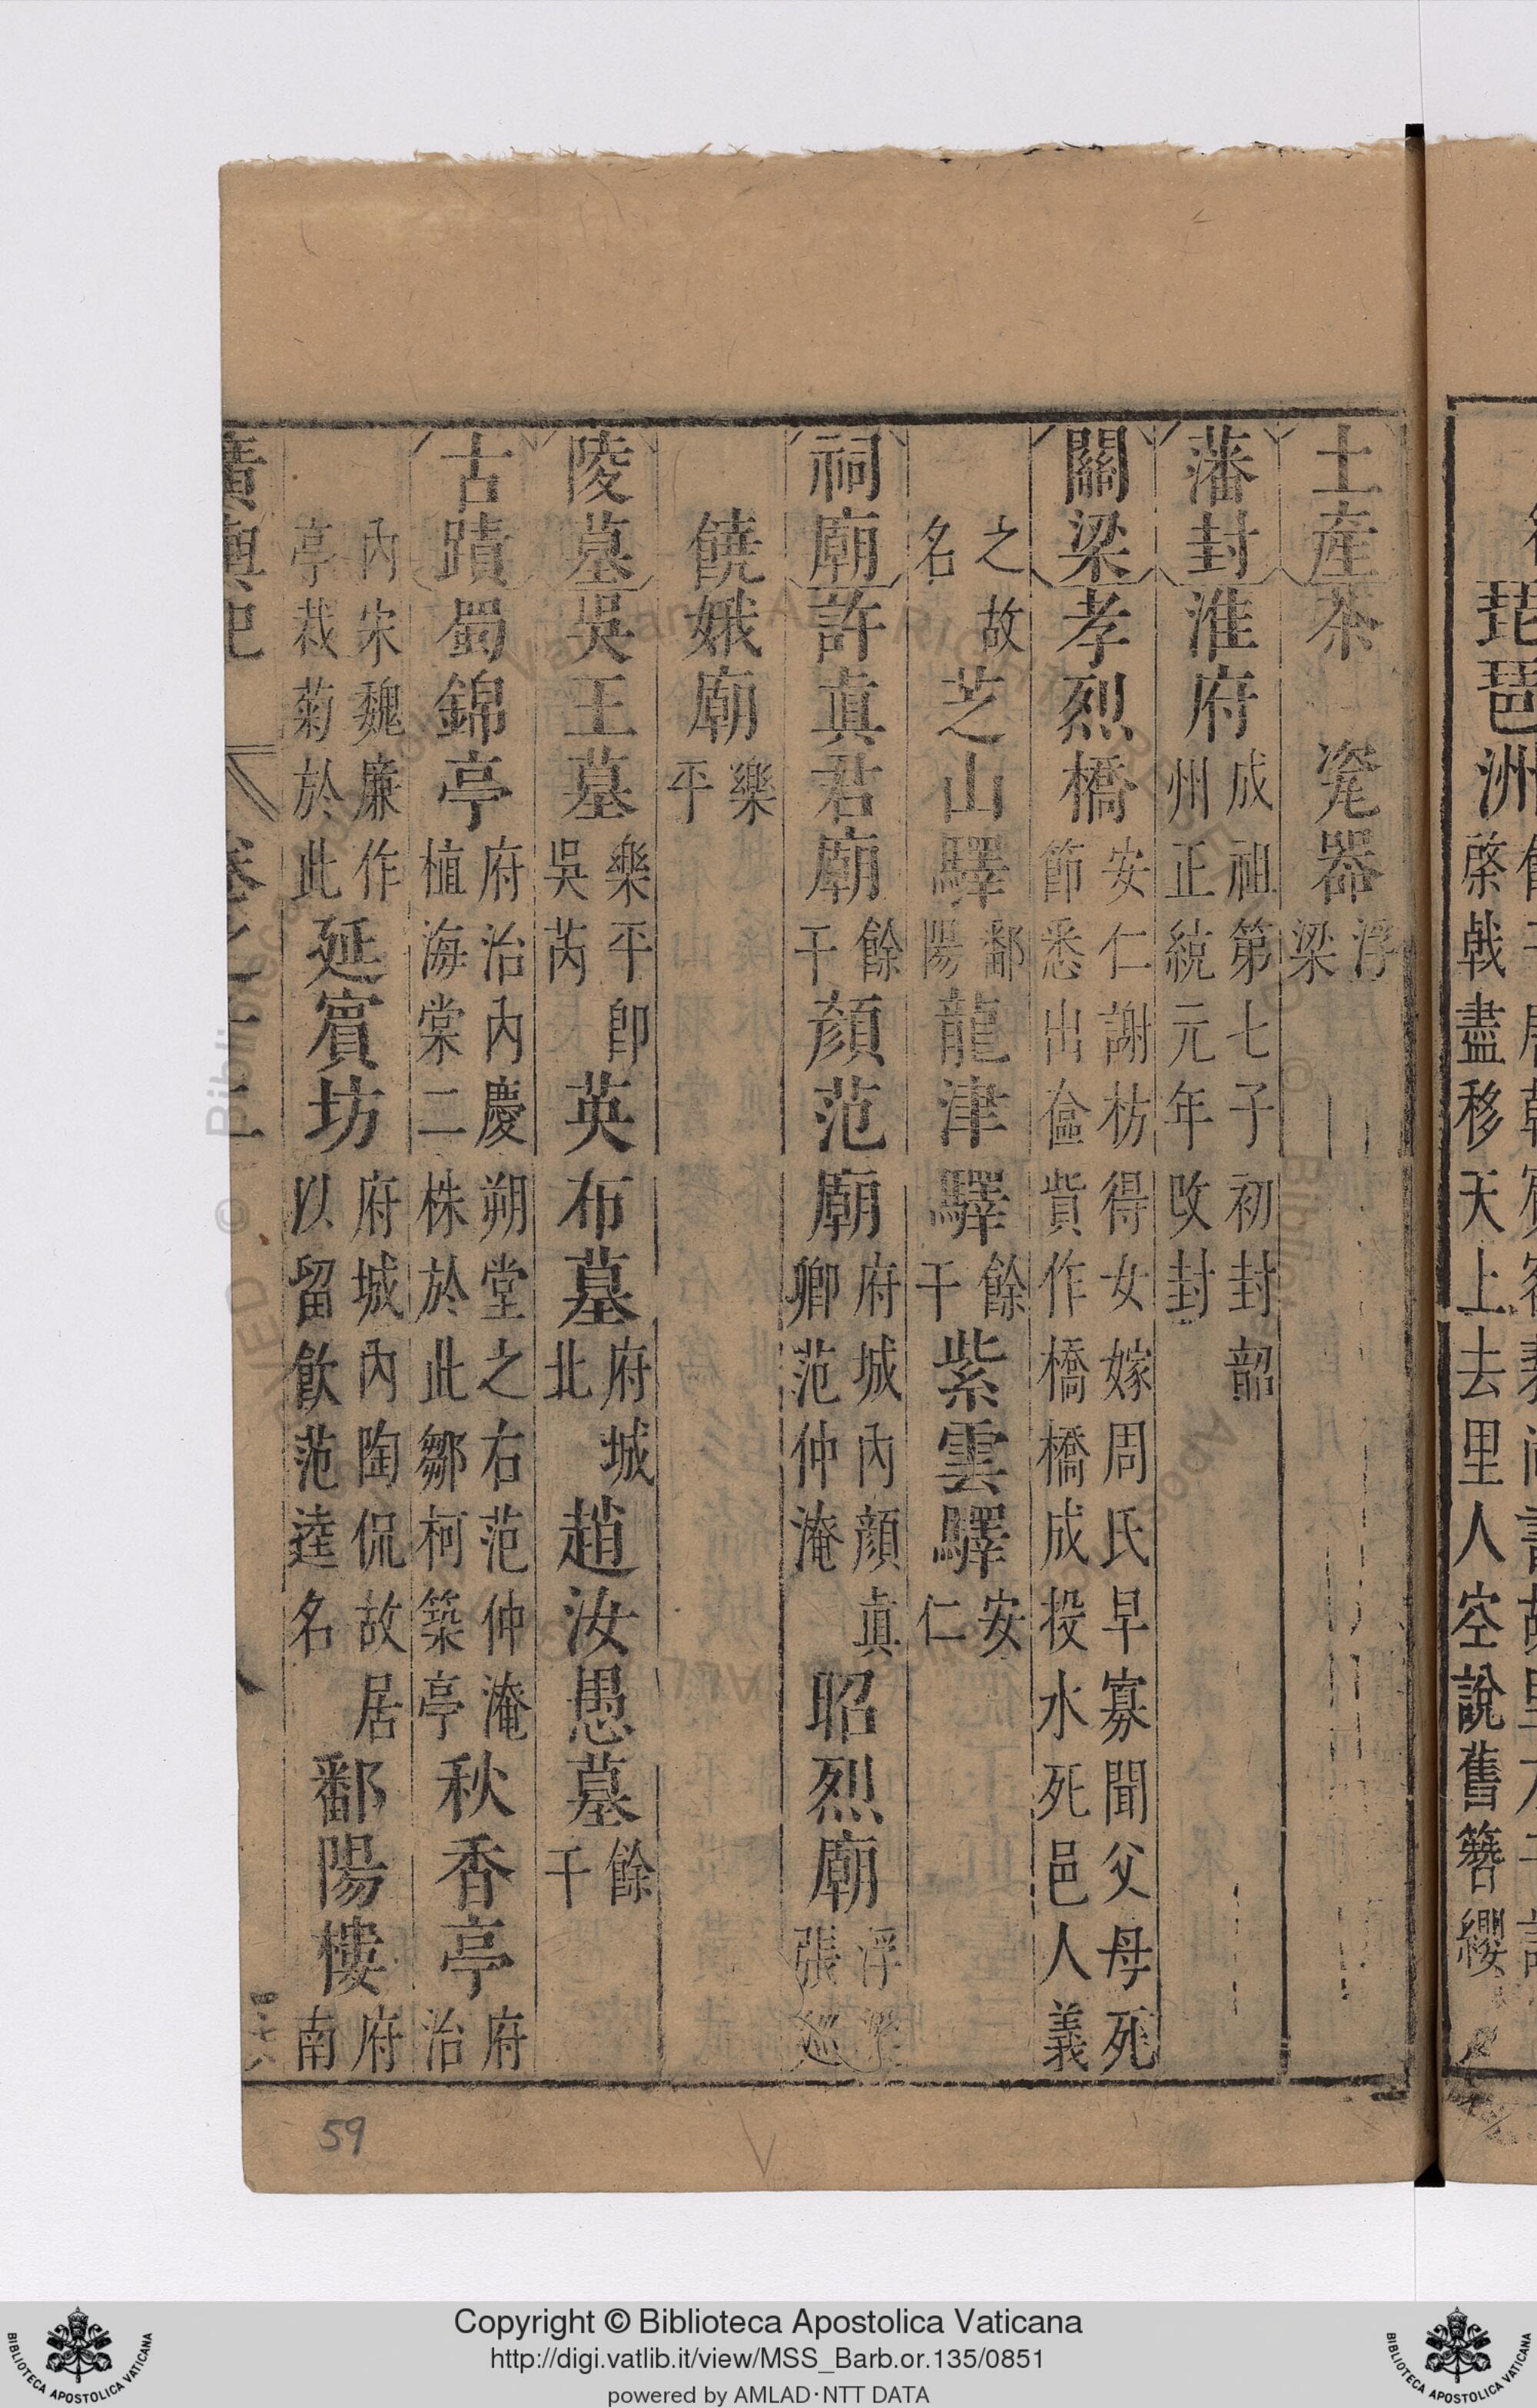 土産茶 瓷器浮梁
藩封淮府成祖第七子初封韶州正統元年改封
關梁孝烈橋安仁謝枋得女嫁周氏早寡聞父母死節悉出奩貲作橋橋成投水死邑人義
之故名芝山驛鄱陽龍津驛餘干紫雲驛安仁
祠廟許真君廟餘干顏范廟府城內顏真卿范仲淹昭烈廟浮梁張巡
饒娥廟樂平
陵墓吳王墓樂平即吳芮英布墓府城北趙汝愚墓餘干
古蹟蜀錦亭府治內慶朔堂之右范仲淹植海棠二株於此鄒柯築亭秋香亭府治
內宋魏廉作亭栽菊於此延賓坊府城內陶侃故居以留飲范逵名鄱陽樓府南
廣輿記 卷之十二
琵琶洲
棨戟盡移天上去里人空說舊簪纓
59
Copyright © Biblioteca Apostolica Vaticana
http://digi.vatlib.it/view/MSS_Barb.or.135/0851
powered by AMLAD·NTT DATA
BIBLIOTECA APOSTOLICA VATICANA
BIBLIOTECA APOSTOLICA VATICANA